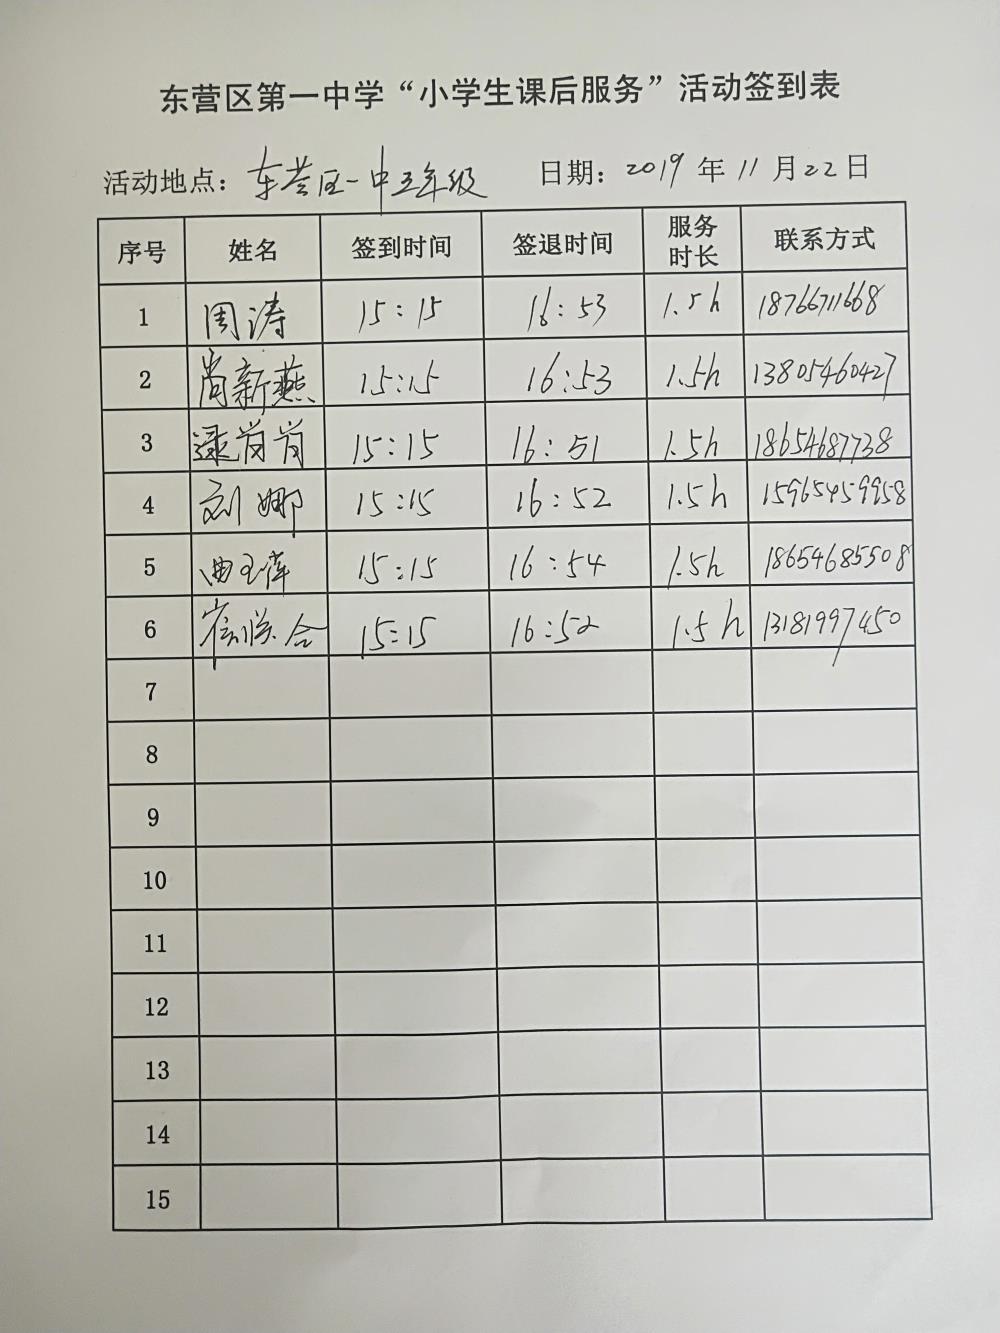 东营区第一中学“小学生课后服务”活动签到表
活动地点：东营区一中五年级 日期：2019 年 11 月 22 日
序号 姓名 签到时间 签退时间 服务时长 联系方式
1 周涛 15:15 16:53 1.5h 18766711668
2 尚新燕 15:15 16:53 1.5h 13805460427
3 逯岗岗 15:15 16:51 1.5h 18654687738
4 刘娜 15:15 16:52 1.5h 15965459958
5 曲玉萍 15:15 16:54 1.5h 18654685508
6 15:15 16:52 1.5h 13181997450
7
8
9
10
11
12
13
14
15